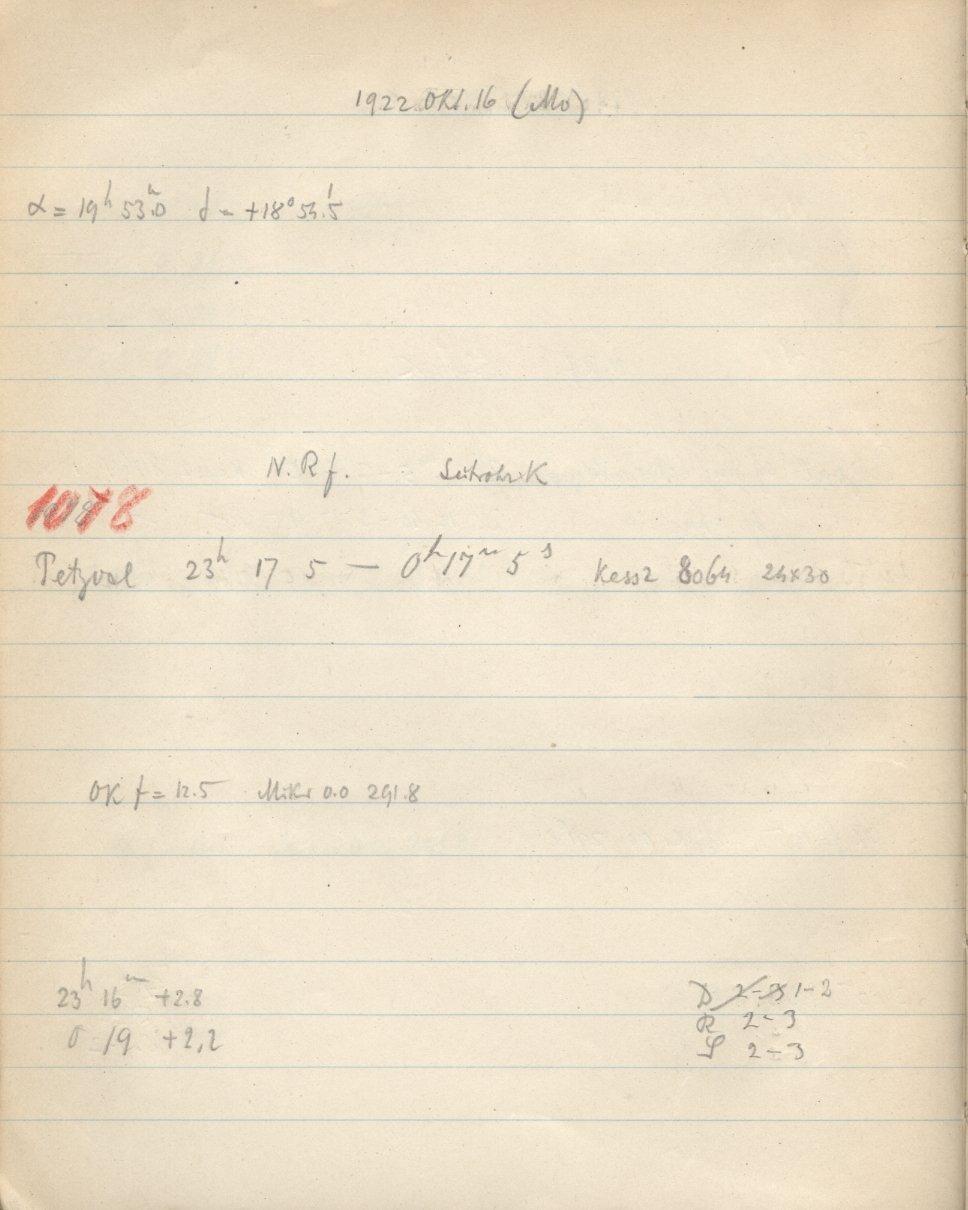 1922 Okt. 16 (Mo)
α = 19h 53m.0 δ = +18° 54'.5
N. Rf. Leitrohr K
1078
Petzval 23h 17 5 — 0h 17m 5s Kessz 8064 24x30
OK f = 12.5 Mikr 0.0 291.8
23h 16m +2.8
0 19 +2,2
D 2-3 1-2
R 2-3
S 2-3